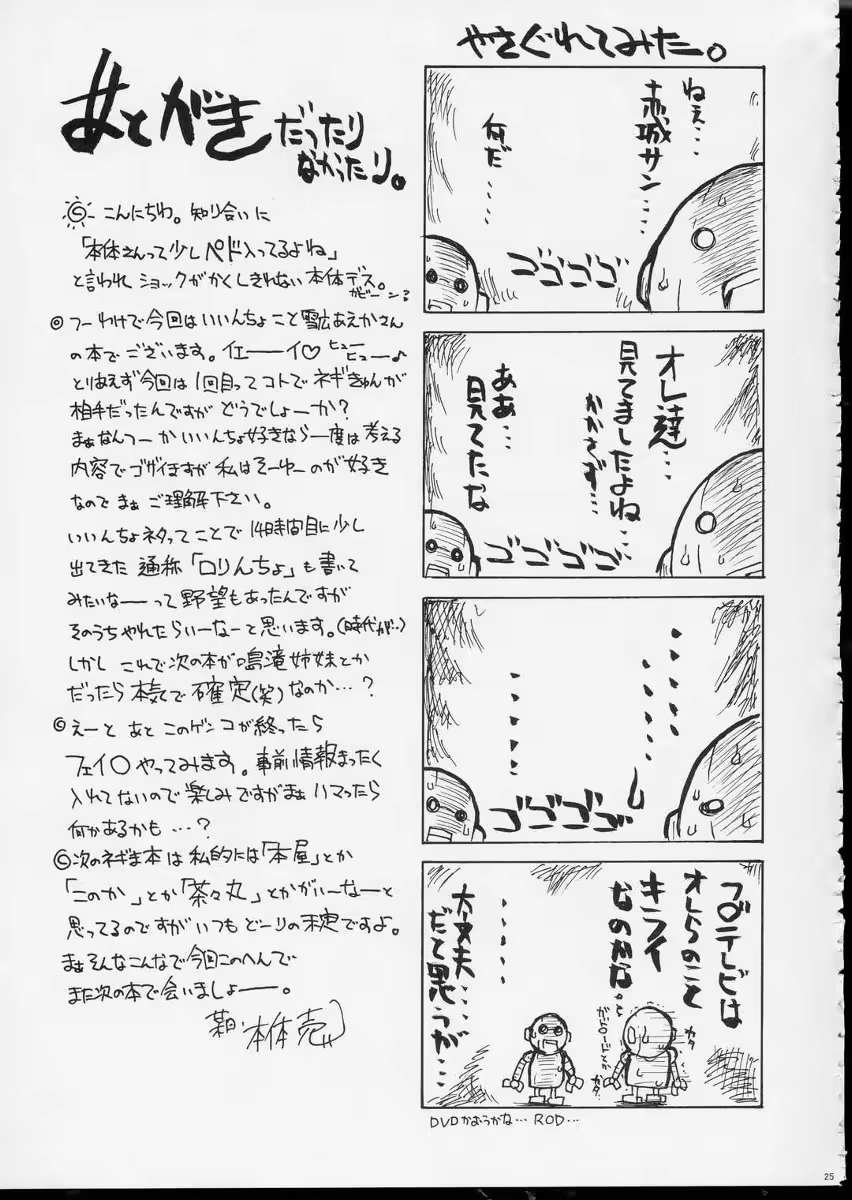 やさぐれてみたー。
ねぇ…
赤城サン…
何だ…
ゴゴゴゴ
オレ達…
見てましたよね…
かかさず…
ああ…
見てたな
ゴゴゴゴ
ゴゴゴゴ
フ○テレビは
オレらのこと
キライ
なのかな。
ガドロードとか
カタ
カタ
大丈夫…
だと思うが…
DVDかおうかな… ROD…
あとがき だったり
なかったり。
こんにちわ。知り合いに
「本体さんって少しペド入ってるよね」
と言われ ショックがかくしきれない 本体デス。
ガビーン
◎ つーわけで今回はいいんちょこと雪広あえかさん
の本でございます。イエーーイ♡ ヒューヒュー♪
とりあえず今回は1回目ってコトでネギきゅんが
相手だったんですが どうでしょーか?
まぁなんつーか いいんちょ好きなら一度は考える
内容でゴザイますが 私はそーゆーのが好き
なので まぁ ご理解下さい。
いいんちょネタってことで 14時間目に少し
出てきた 通称「ロりんちょ」も書いて
みたいなーって野望もあったんですが
そのうちやれたらいーなーと思います。(時代が…)
しかし これで次の本が鳴滝姉妹とか
だったら 本気で確定(笑)なのか…?
◎ えーと あと このゲンコが終ったら
フェイ○ やってみます。事前情報まったく
入れてないので楽しみですがまぁ ハマったら
何かあるかも …?
◎次のネギま本は 私的には「本屋」とか
「このか」とか「茶々丸」とかがいーなーと
思ってるのですが いつもどーりの未定ですよ。
まぁそんなこんなで今回このへんで
また次の本で会いましょー。
本体売
25